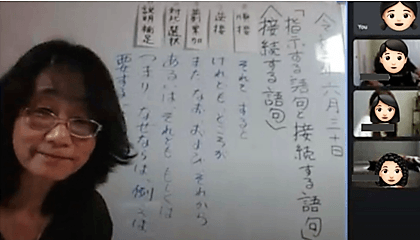 六月三十日
「指示する語句と接続する語句」
〈接続する語句〉
順接 それで すると
逆接 けれども、ところが
累加 また、なお、および、それから
対比 選択 あるいは、それとも、もしくは
説明 補足 つまり、なぜならば、例えば、
要するに
You